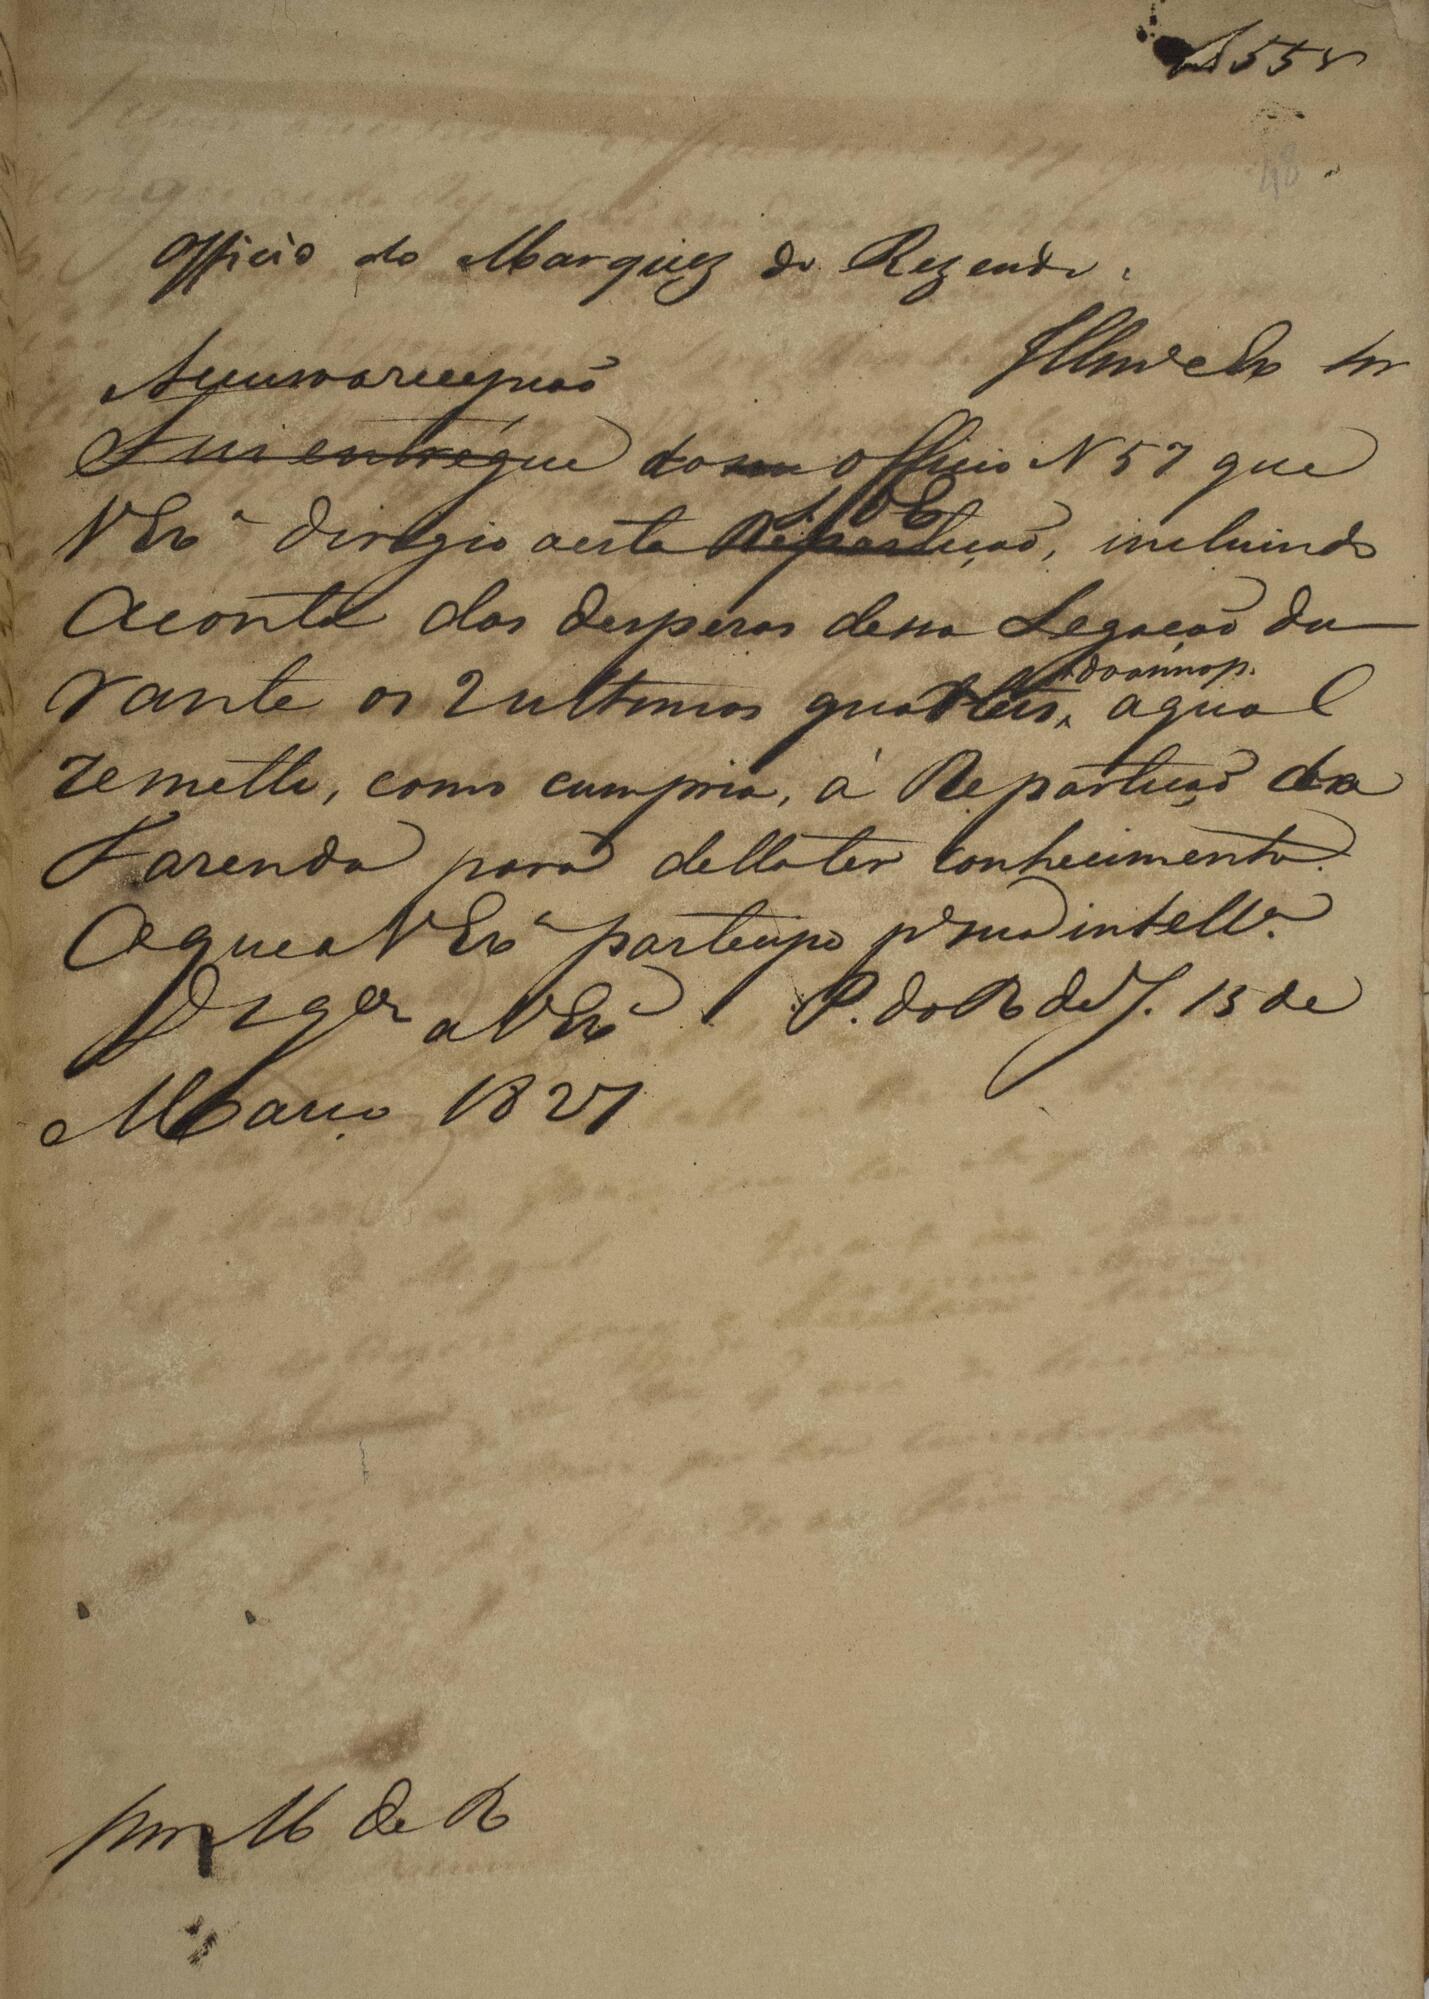 48
Officio do Marquez de Rezende.
Illmo e Exmo Snr
Accuso a recepção
Fui entregue do seu officio N 57 que
V Exa dirigio a esta Repartição, incluindo
a conta das despezas dessa Legação du
rante os 2 ultimos quarteis, a qual
remetti, como cumpria, á Repartição da
Fazenda para della ter conhecimento.
O que a V Exa participo pa sua intella.
Ds ge a V Exa P. do R de J. 15 de
Março 1827
Snr M de R